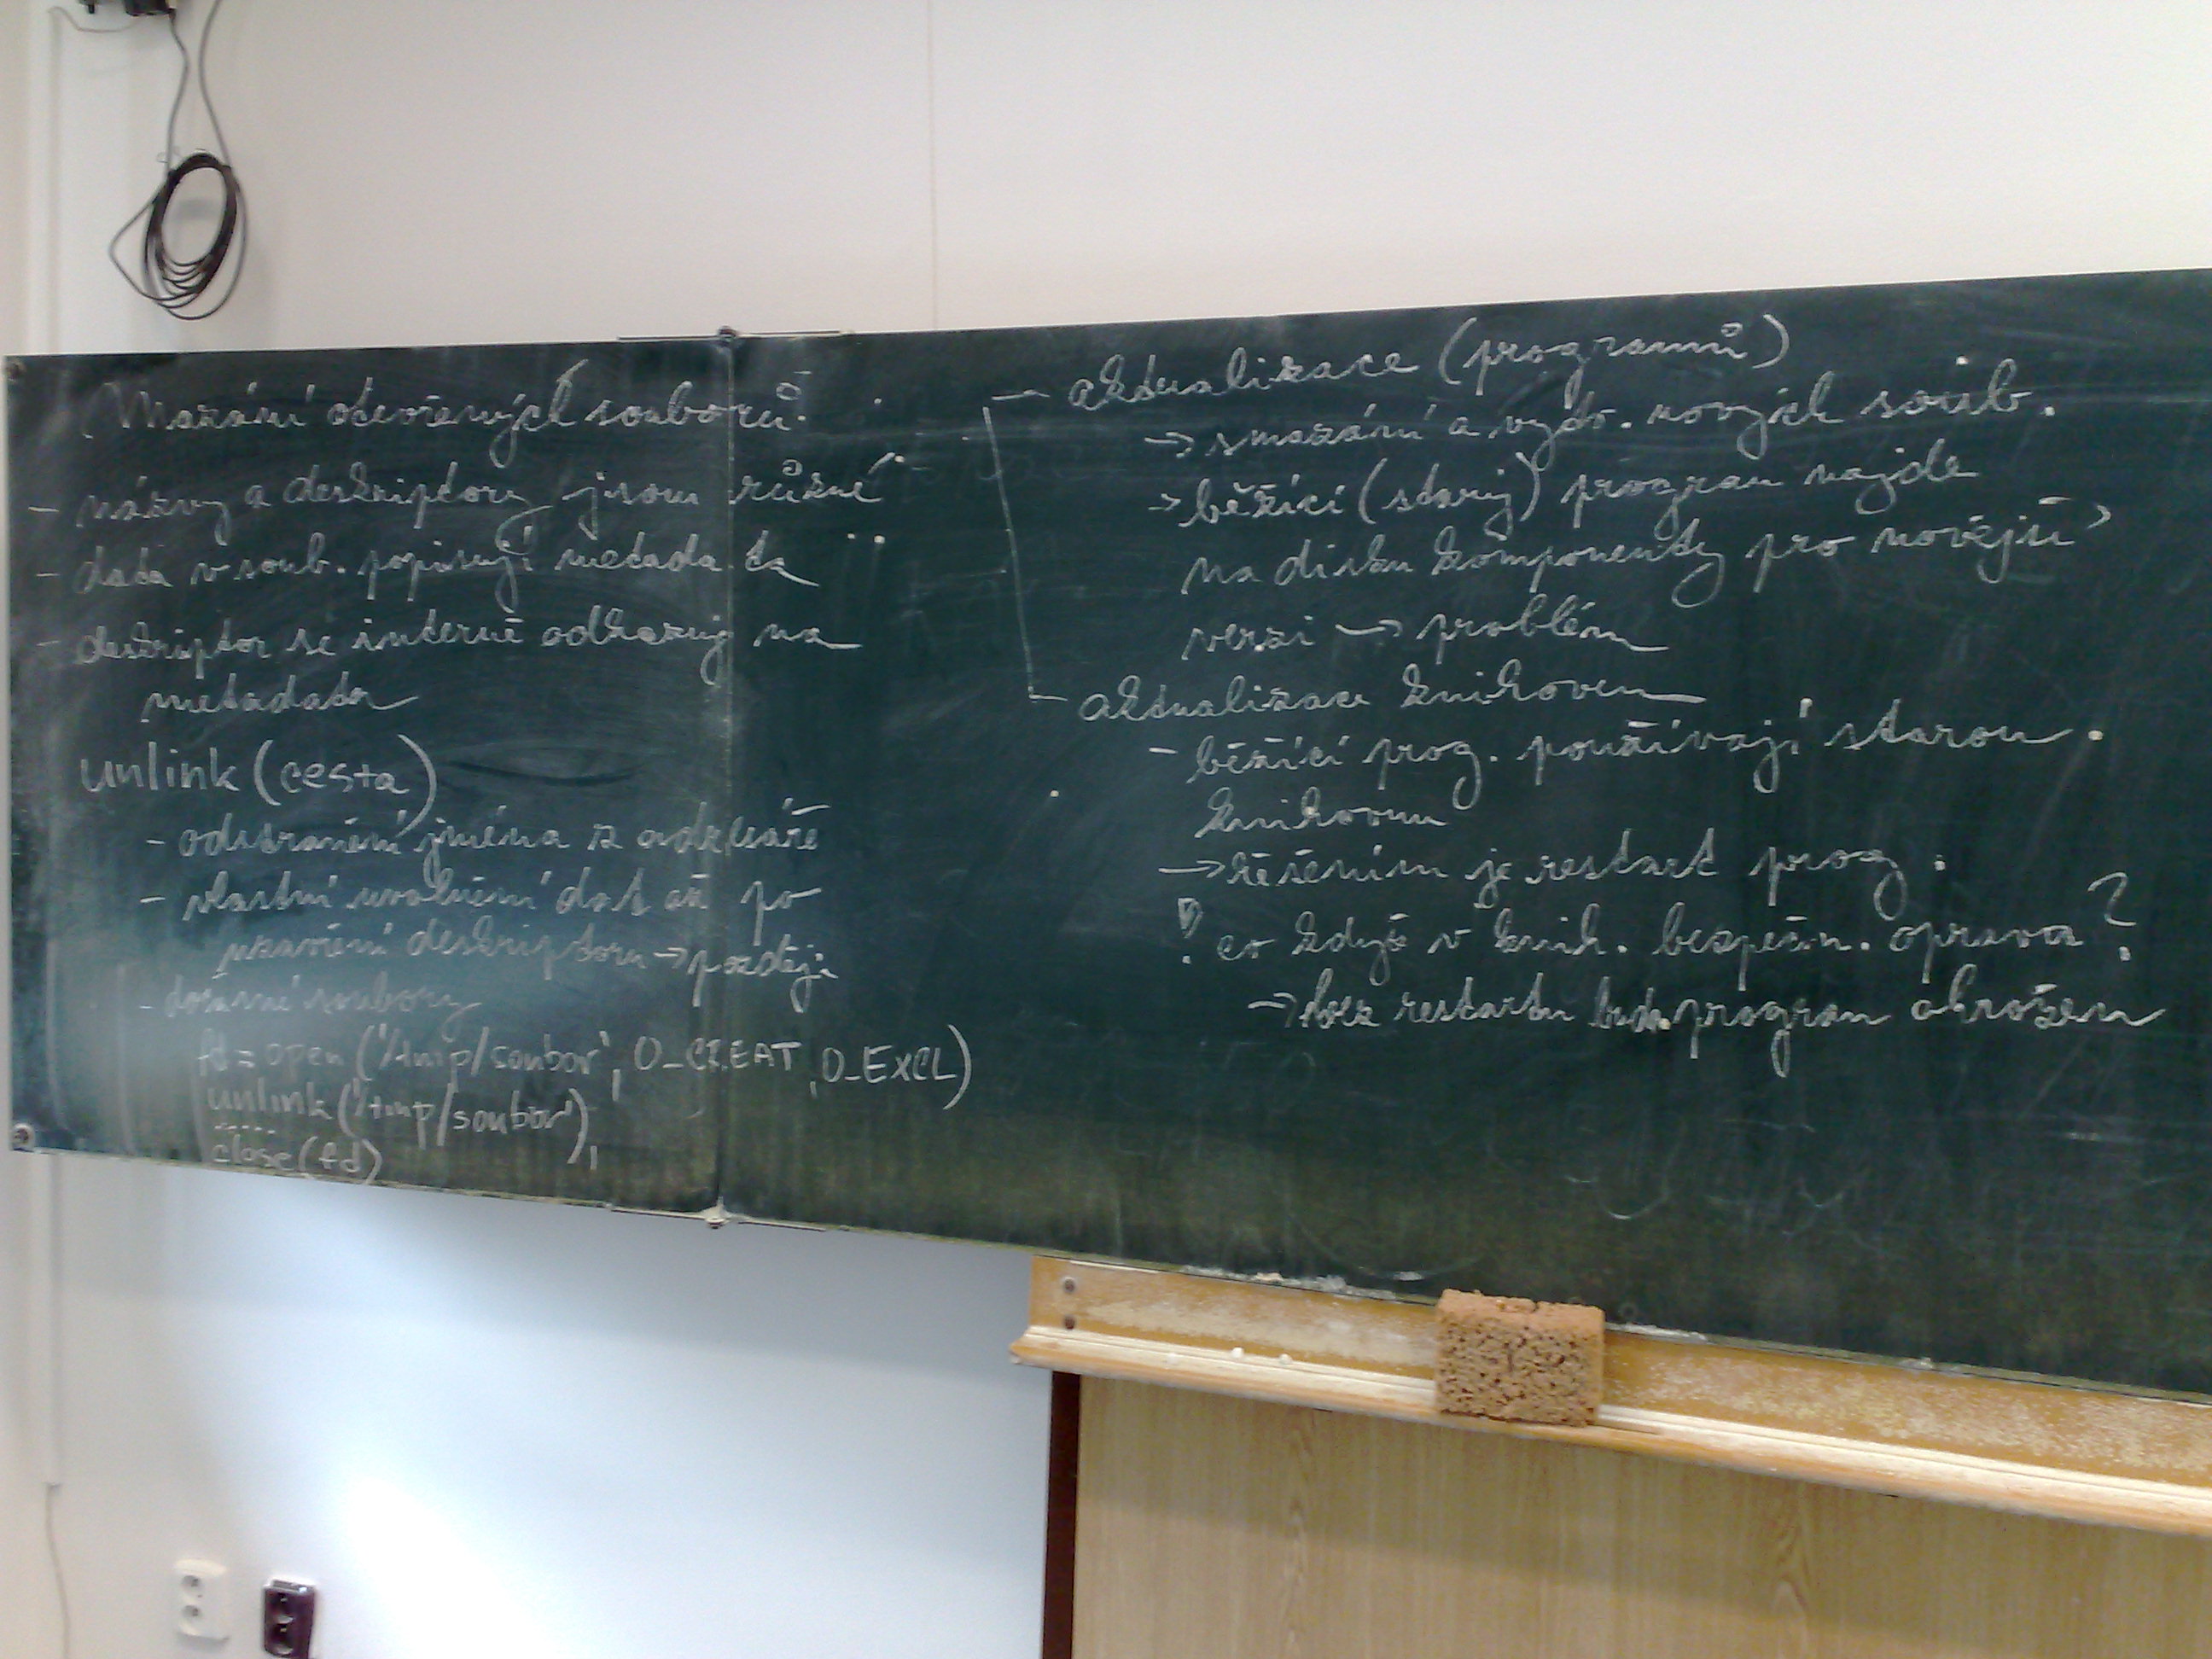 Mazání otevřených souborů
- názvy a deskriptory jsou různé
- data v soub. popisují metadata
- deskriptor se interně odkazuje na
metadata
unlink(cesta)
- odstranění jména z adresáře
- vlastní uvolnění dat až po
uzavření deskriptoru → později
- dočasné soubory
fd = open('/tmp/soubor', O_CREAT, O_EXCL)
unlink('/tmp/soubor');
.....
close(fd)
- aktualizace (programů)
→ smazání a vytv. nových soub.
→ běžící (starý) program najde
na disku komponenty pro novější
verzi → problém
- aktualizace knihoven
- běžící prog. používají starou
knihovnu
→ řešením je restart prog.
! co když v knih. bezpečn. oprava?
→ bez restartu bude program ohrožen